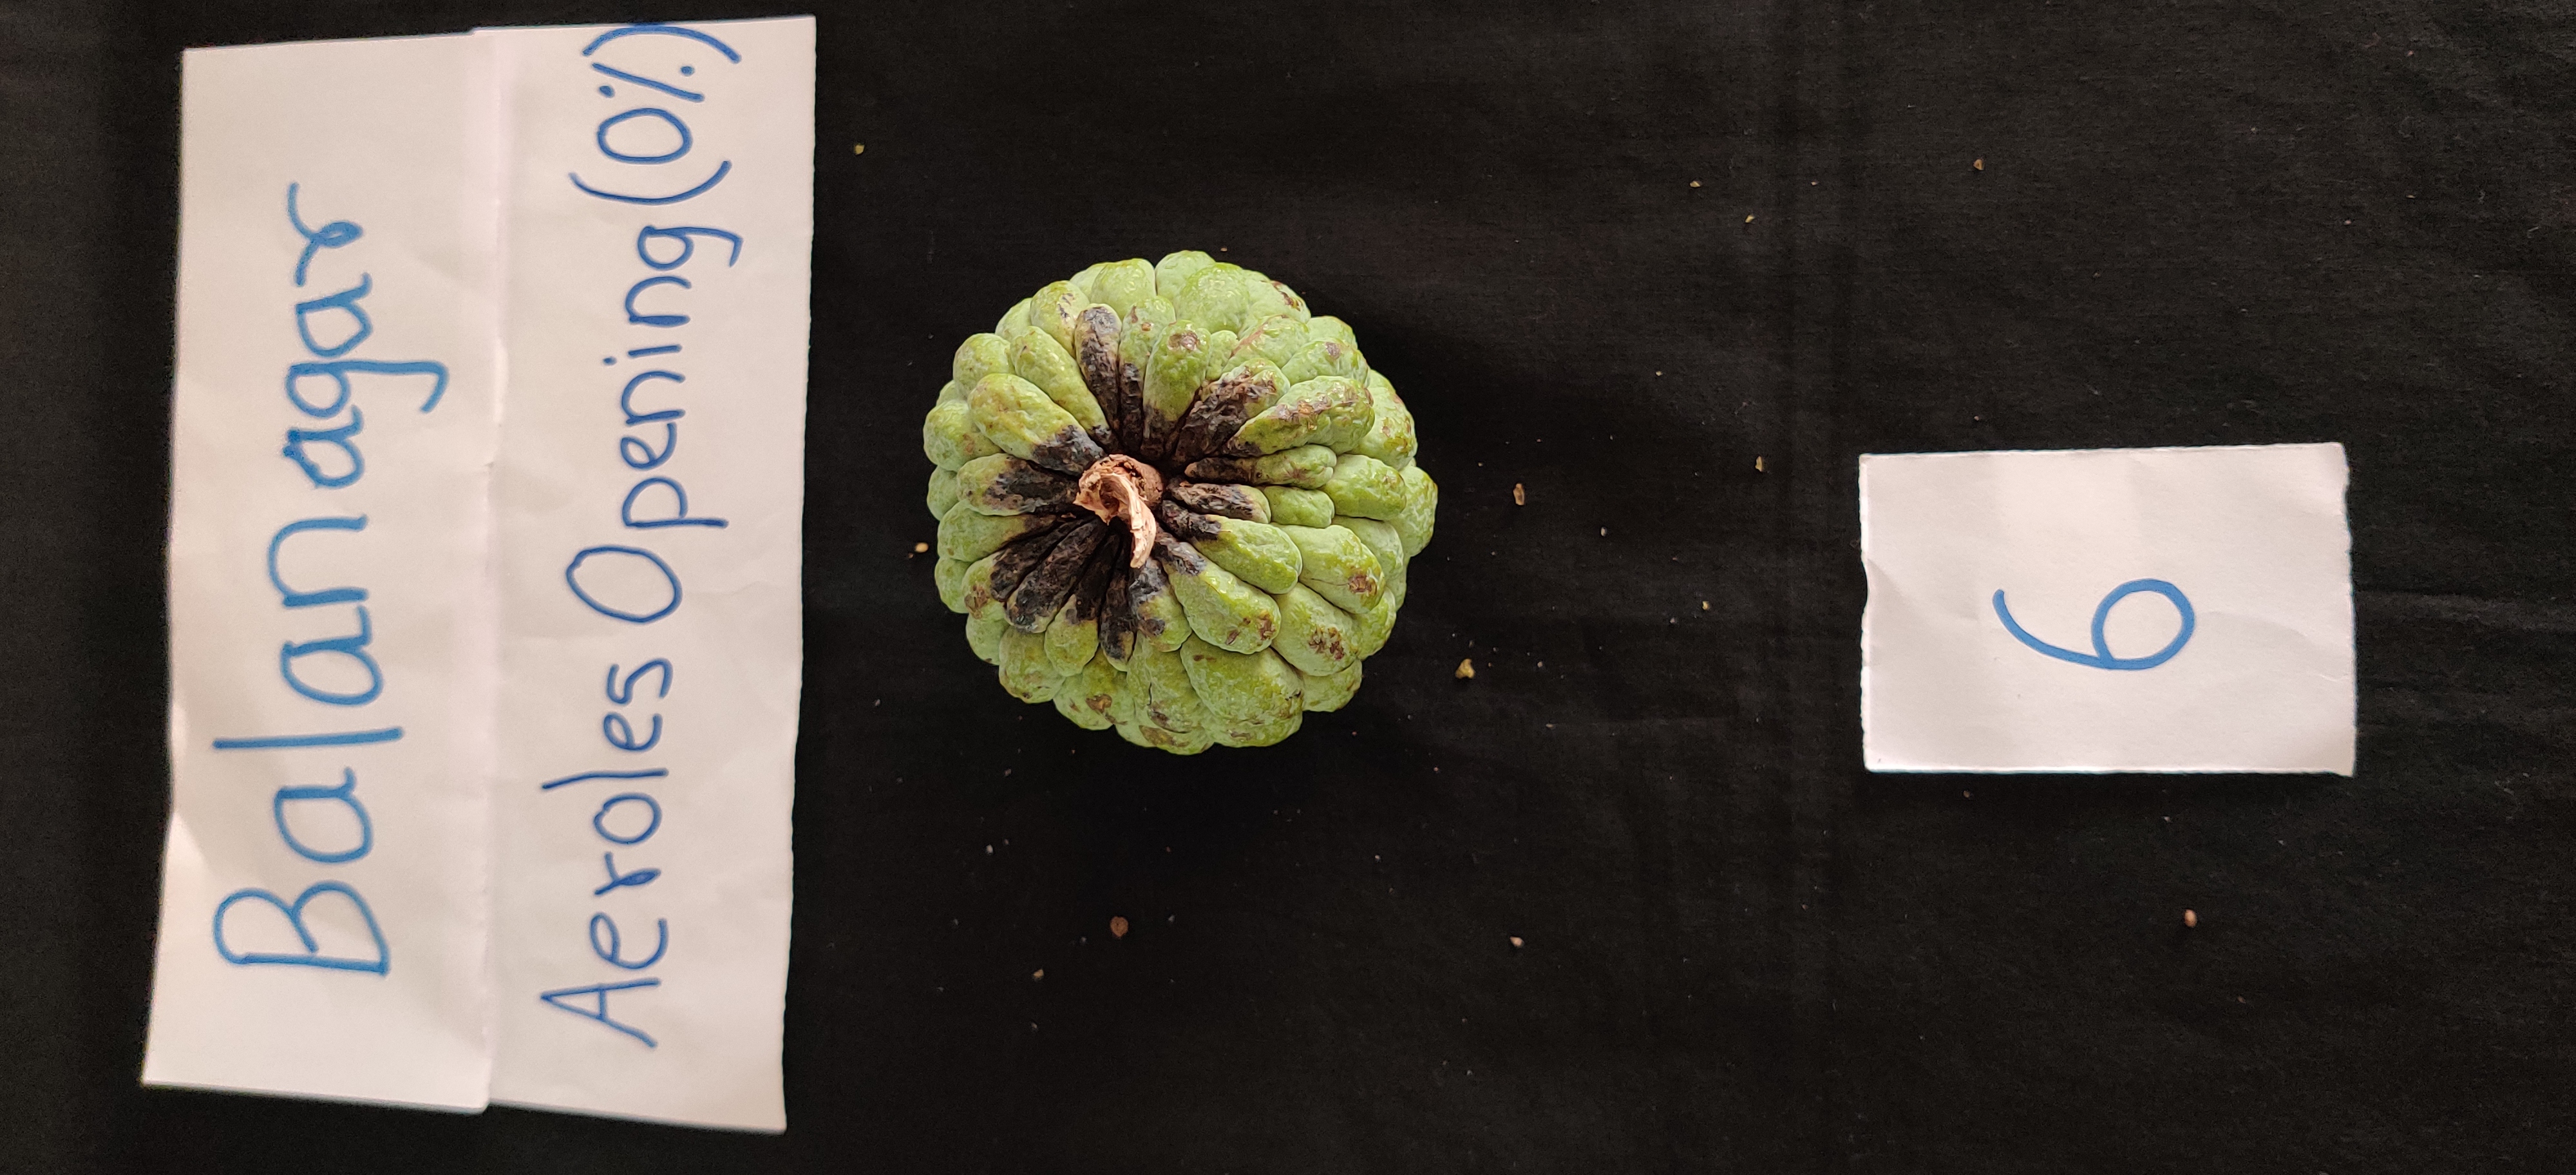 Balanagar
Aeroles Opening (0%)
6